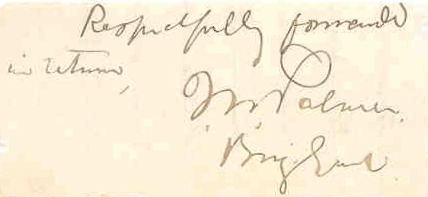 Respectfully forwarded
in return,
Palmer.
Brig. Genl.